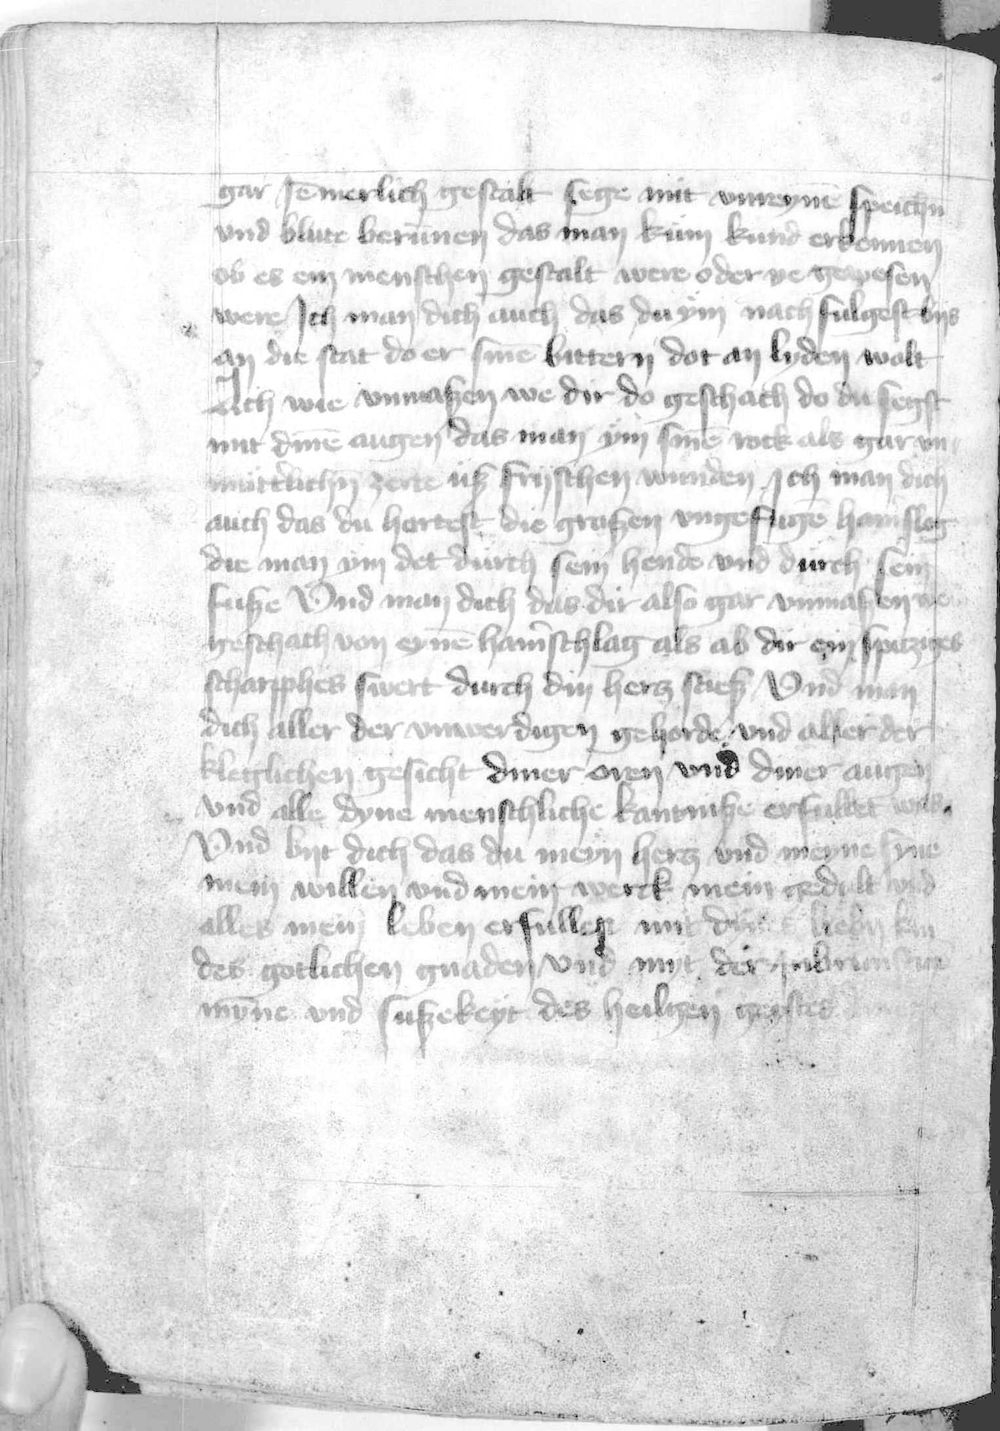 gar Jemerlich gestalt sege mit vnreynē speichn
vnd blute berūnen das man kum kund erkennen
ob es ein menschen gestalt were oder ye gewesen
were Ich man dich auch das du ym nach fulgest bys
an die stat do er sinē bittern dot an lyden wolt
Ach wie vnmaßen we dir do geschach do du segst
mit dinē augen das man ym sinē rock als gar vn
mutterlichn zerte uß fryschen wunden Ich man dich
auch das du hortest die großen vngefugē hamsleg
die man ym det durch sein hende vnd durch sein
fuße Vnd man dich das dir also gar vnmaßen we
geschach von eynē hamschlag als ab dir ein spitziges
scharpphes swert durch din hertz stieß Vnd man
dich aller der vnwerdigen gehorde vnd aller der
kleglichen gesicht diner oren vnd diner augen
vnd alle dyne menschliche kantniße erfullet was
Vnd byt dich das du meyn hertz vnd meyne syne
mein willen vnd mein werck mein gedult vnd
alles mein leben erfullest mit dyns liebn
des gotlichen gnaden vnd myt der
mȳne vnd sußekeyt des heilgen geystes